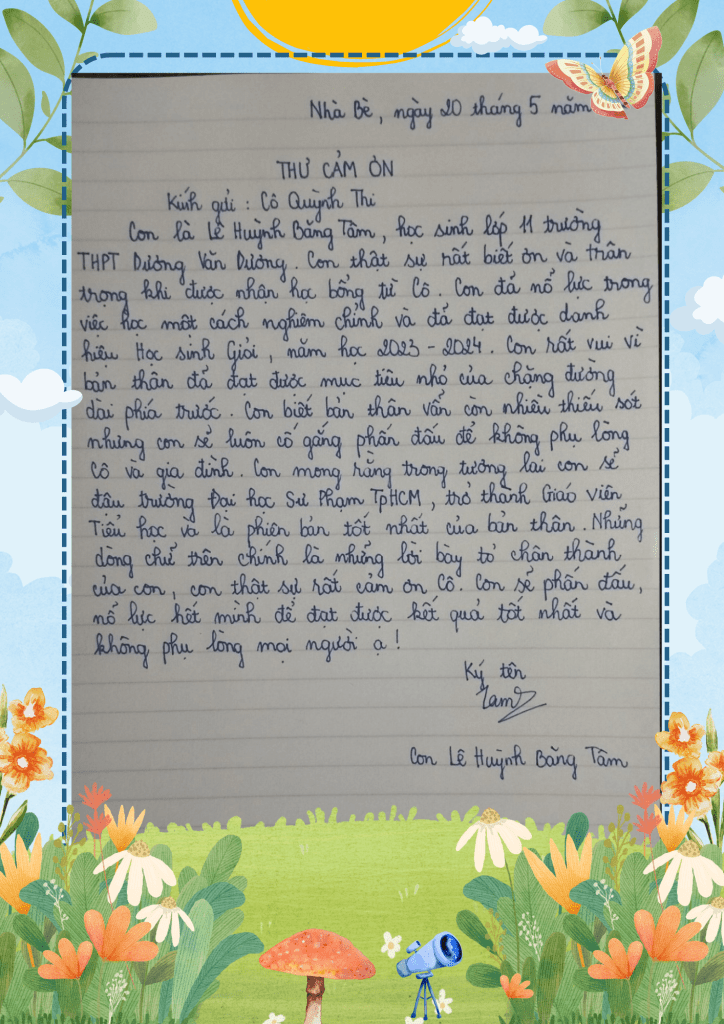 Nhà Bè, ngày 20 tháng 5 năm
THƯ CẢM ƠN
Kính gửi : Cô Quỳnh Thi
Con là Lê Huỳnh Băng Tâm, học sinh lớp 11 trường
THPT Dương Văn Dương. Con thật sự rất biết ơn và trân
trọng khi được nhận học bổng từ Cô. Con đã nổ lực trong
việc học một cách nghiêm chỉnh và đã đạt được danh
hiệu Học sinh Giỏi, năm học 2023 - 2024. Con rất vui vì
bản thân đã đạt được mục tiêu nhỏ của chặng đường
dài phía trước. Con biết bản thân vẫn còn nhiều thiếu sót
nhưng con sẽ luôn cố gắng phấn đấu để không phụ lòng
Cô và gia đình. Con mong rằng trong tương lai con sẽ
đậu trường Đại học Sư Phạm TpHCM, trở thành Giáo viên
Tiểu học và là phiên bản tốt nhất của bản thân. Những
dòng chữ trên chính là những lời bày tỏ chân thành
của con, con thật sự rất cảm ơn Cô. Con sẽ phấn đấu,
nổ lực hết mình để đạt được kết quả tốt nhất và
không phụ lòng mọi người ạ !
Ký tên
Tâm
Con Lê Huỳnh Băng Tâm